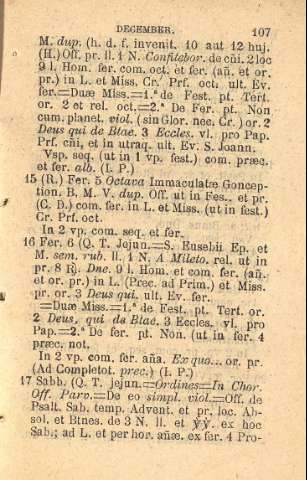 DECEMBER. 107
M. dup. (h. d. f. invenit. 10 aut 12 huj.
(H.) Off. pr. ll. 1 N. Confitebor. de cñi. 2 loc
9 l. Hom. fer. com. oct. et fer. (añ. et or.
pr.) in L. et Miss. Cr. Prf. oct. ult. Ev.
fer.=Duæ Miss.=1.ª de Fest. pt. Tert.
or. 2 et rel. oct.=2.ª De Fer. pt. Non
cum. planet. viol. (sin Glor. nec. Cr.) or. 2
Deus qui de Btae. 3 Eccles. vl. pro Pap.
Prf. cñi, et in utraq. ult. Ev. S. Joann.
Vsp. seq. (ut in 1 vp. fest.) com. præc.
et fer. alb. (I. P.)
15 (R.) Fer. 5 Octava Immaculatæ Goncep-
tion. B. M. V. dup. Off. ut in Fes.. et pr.
(C. D.) com. fer. in L. et Miss. (ut in fest.)
Cr. Prf. oct.
In 2 vp. com. seq. et fer.
16 Fer. 6 (Q. T. Jejun.=S. Eusebii Ep. et
M. sem. rub. ll. 1 N. A Mileto. rel. ut in
pr. 8 R). Dne. 9 l. Hom. et com. fer. (añ.
et or. pr.) in L. (Prec. ad Prim.) et Miss.
pr. or. 3 Deus qui. ult. Ev. fer.
=Duæ Miss.=1.ª de Fest. pt. Tert. or.
2 Deus, qui de Btae. 3 Eccles. vl. pro
Pap.=2.ª De fer. pt. Non. (ut in fer. 4
præc. not.
In 2 vp. com. fer. aña. Ex quo... or. pr.
(Ad Completot. prec.) (I. P.)
17 Sabb. (Q. T. jejun.=Ordines=In Chor.
Off. Parv.=De eo simpl. viol.=Off. de
Psalt. Sab. temp. Advent. et pr. loc. Ab-
sol. et Btnes. de 3 N. ll. et ℣℣. ex hoc
Sab.; ad L. et per hor. añæ. ex fer. 4 Pro-